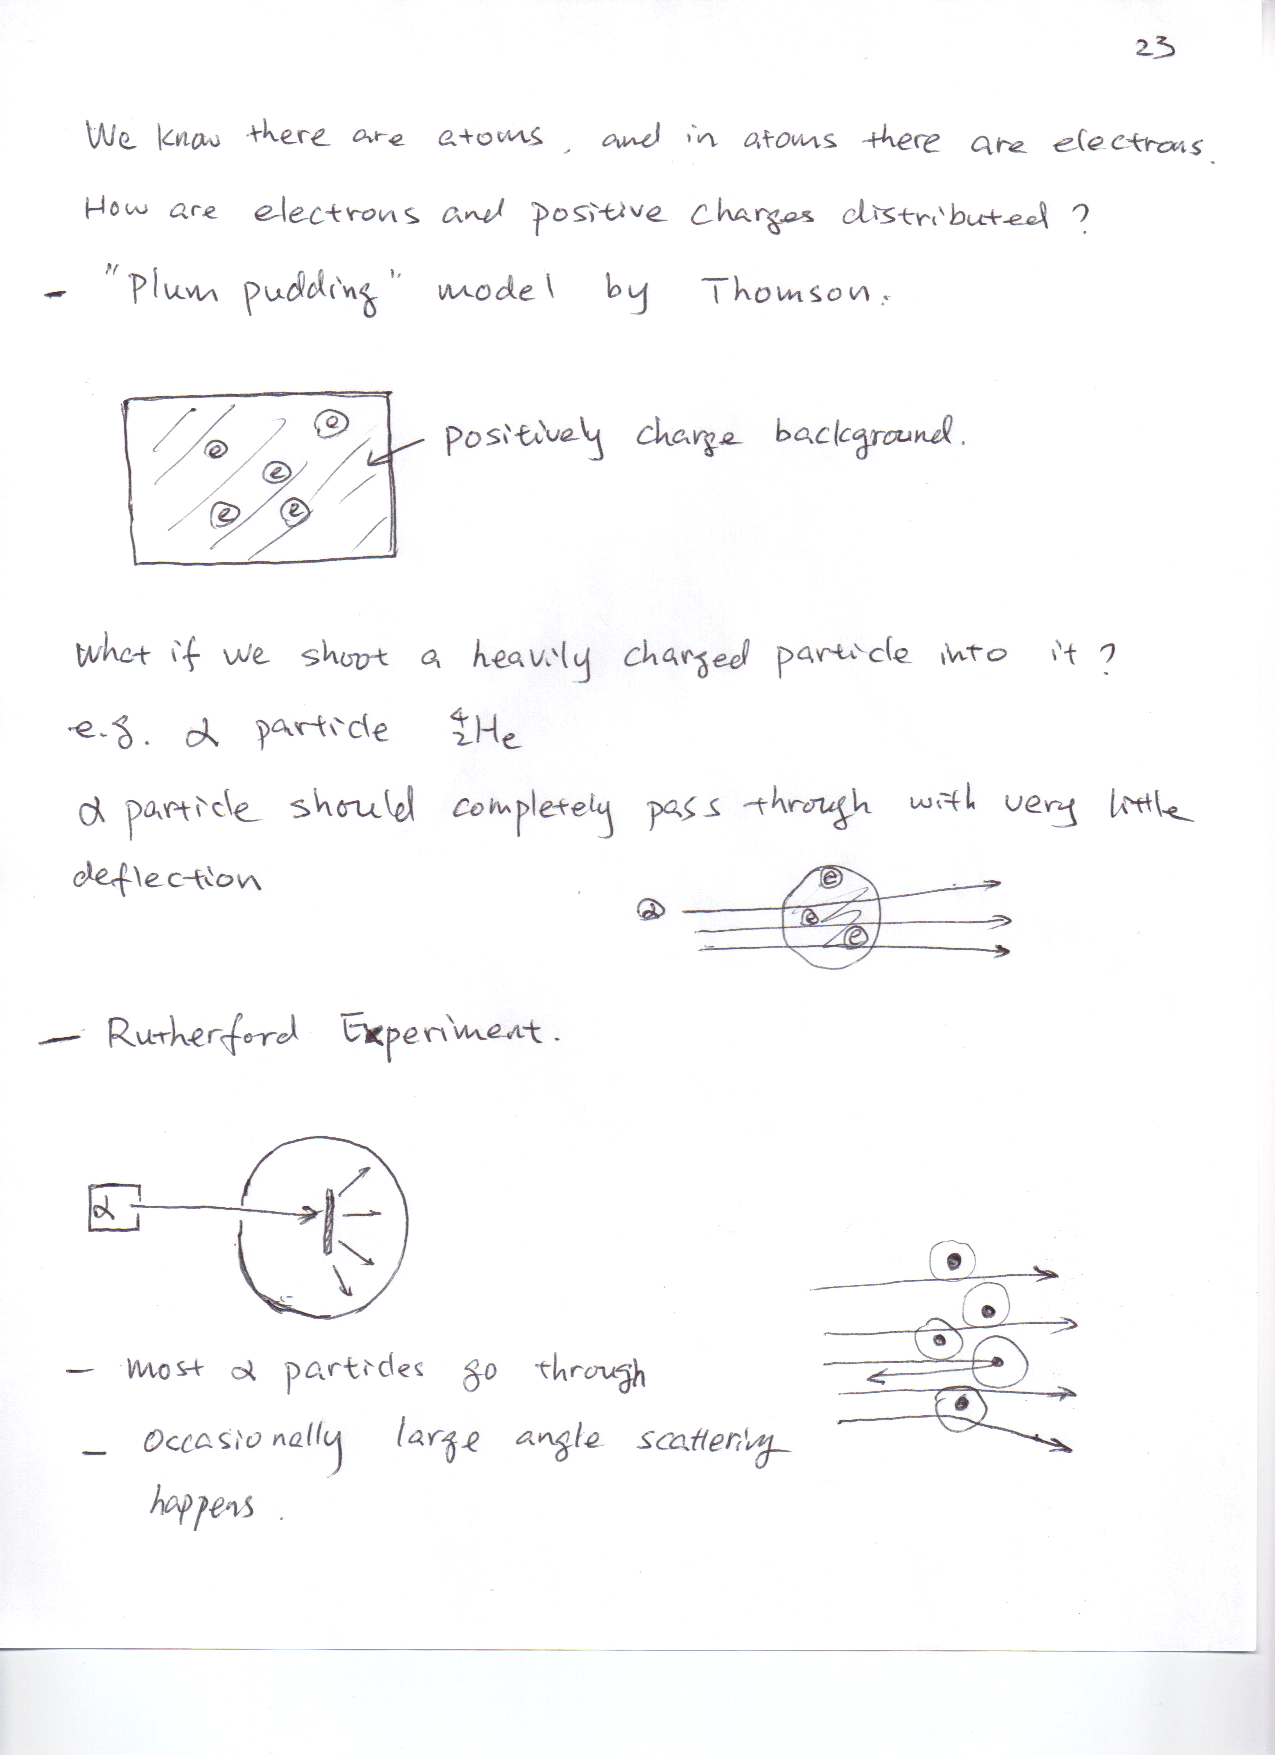 23
We know there are atoms, and in atoms there are electrons.
How are electrons and positive charges distributed?
- "Plum pudding" model by Thomson.
e
e
e
e
e
positively charge background.
What if we shoot a heavily charged particle into it?
e.g. α particle ⁴₂He
α particle should completely pass through with very little
deflection
α
e
e
e
- Rutherford Experiment.
α
- most α particles go through
- occasionally large angle scattering
happens.